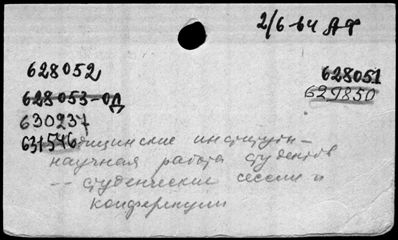 2/6-64 АФ
628052 628051
628053-ОД 629850
630237
631546 дицинские институты-
научная работа студентов
-- студенческие сессии и
конференции